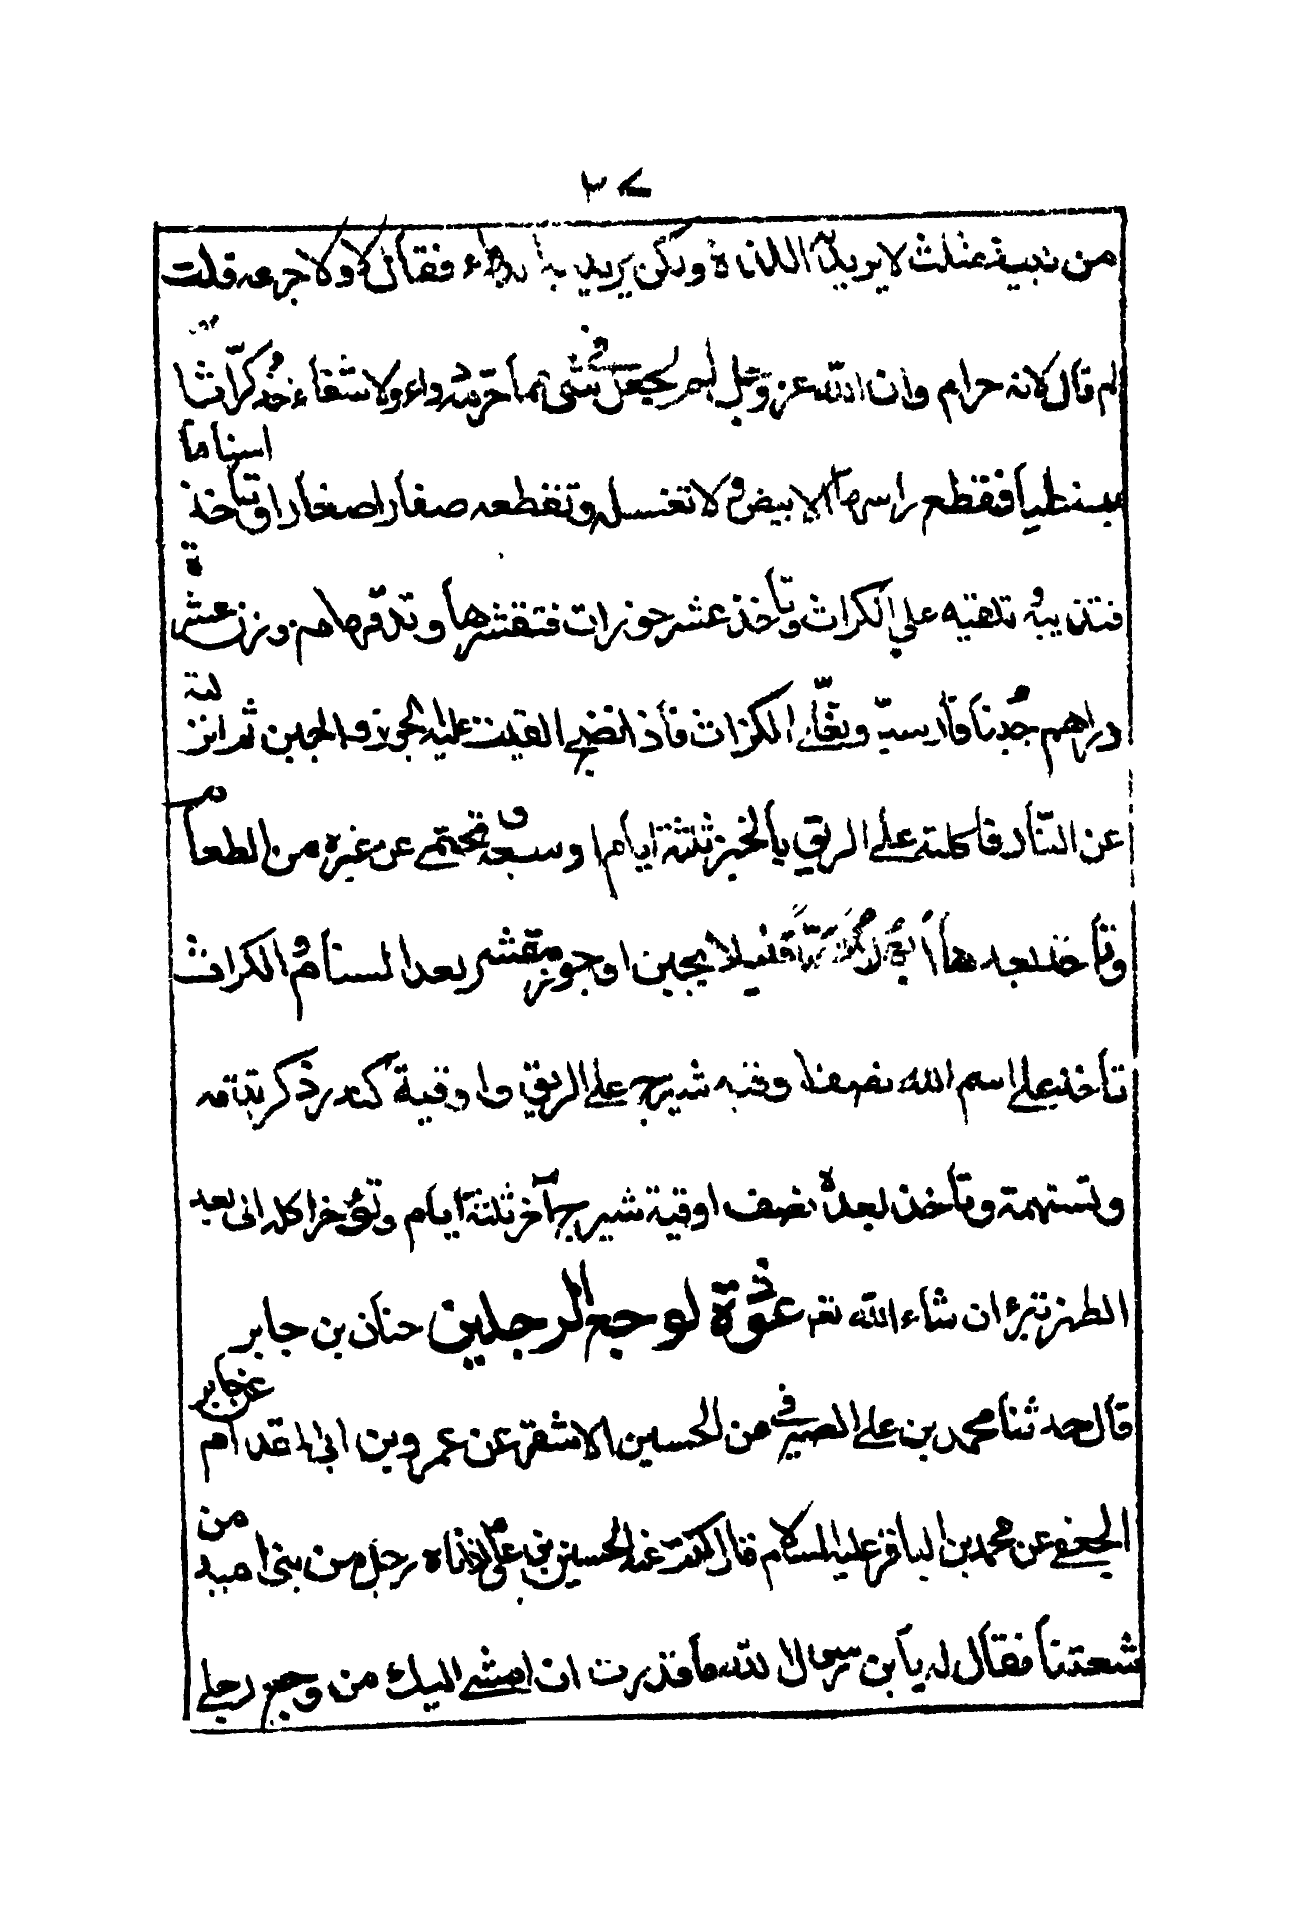 ٣٧
من نبيذ مثلث لا يريد به اللذاذة ولكن يريد به الدواء فقال لا ولا جرعه قلت
لم قال لانه حرام وان الله عز وجل لم يجعل في شئ مما حرمه دواء ولا شفاء خذ كراثا
فقطع راسها الابيض ولا تغسله وتقطعه صغارا صغارا وتاخذ سناما
فتذيبه تلقيه على الكراث وتاخذ عشر جوزات فتقشرها وتدقها مع وزن عشرة
دراهم جبنا فارسيا وتغلى الكراث فاذا نضج القيت عليه الجوز والجبن ثم انزلته
عن النار فاكلته على الريق بالخبز ثلثة ايام او سبعه وتحتمى عن غيره من الطعام
وتاخذ بعدها قليلا بجبن او جوز مقشر بعد السنام والكراث
تاخذ على اسم الله نصف اوقيه شيرج على الريق واوقية كندر ذكر تدقه
وتستفه وتاخذ بعده نصف اوقية شيرج آخر ثلثة ايام وتؤخر اكله الى بعد
الظهر تبرئ ان شاء الله تعـ عوذة لوجع الرجلين حنان بن جابر
قال حدثنا محمد بن على الصيرفى من الحسين الاشقر عن عمرو بن ابى المقدام عن جابر
الجعفى عن محمد بن الباقر عليه السلام قال كنت عند الحسين بن على اذ اتاه رجل من بنى امية من
شعتنا فقال له يا بن رسول الله ما قدرت ان امشى اليك من وجع رجلى